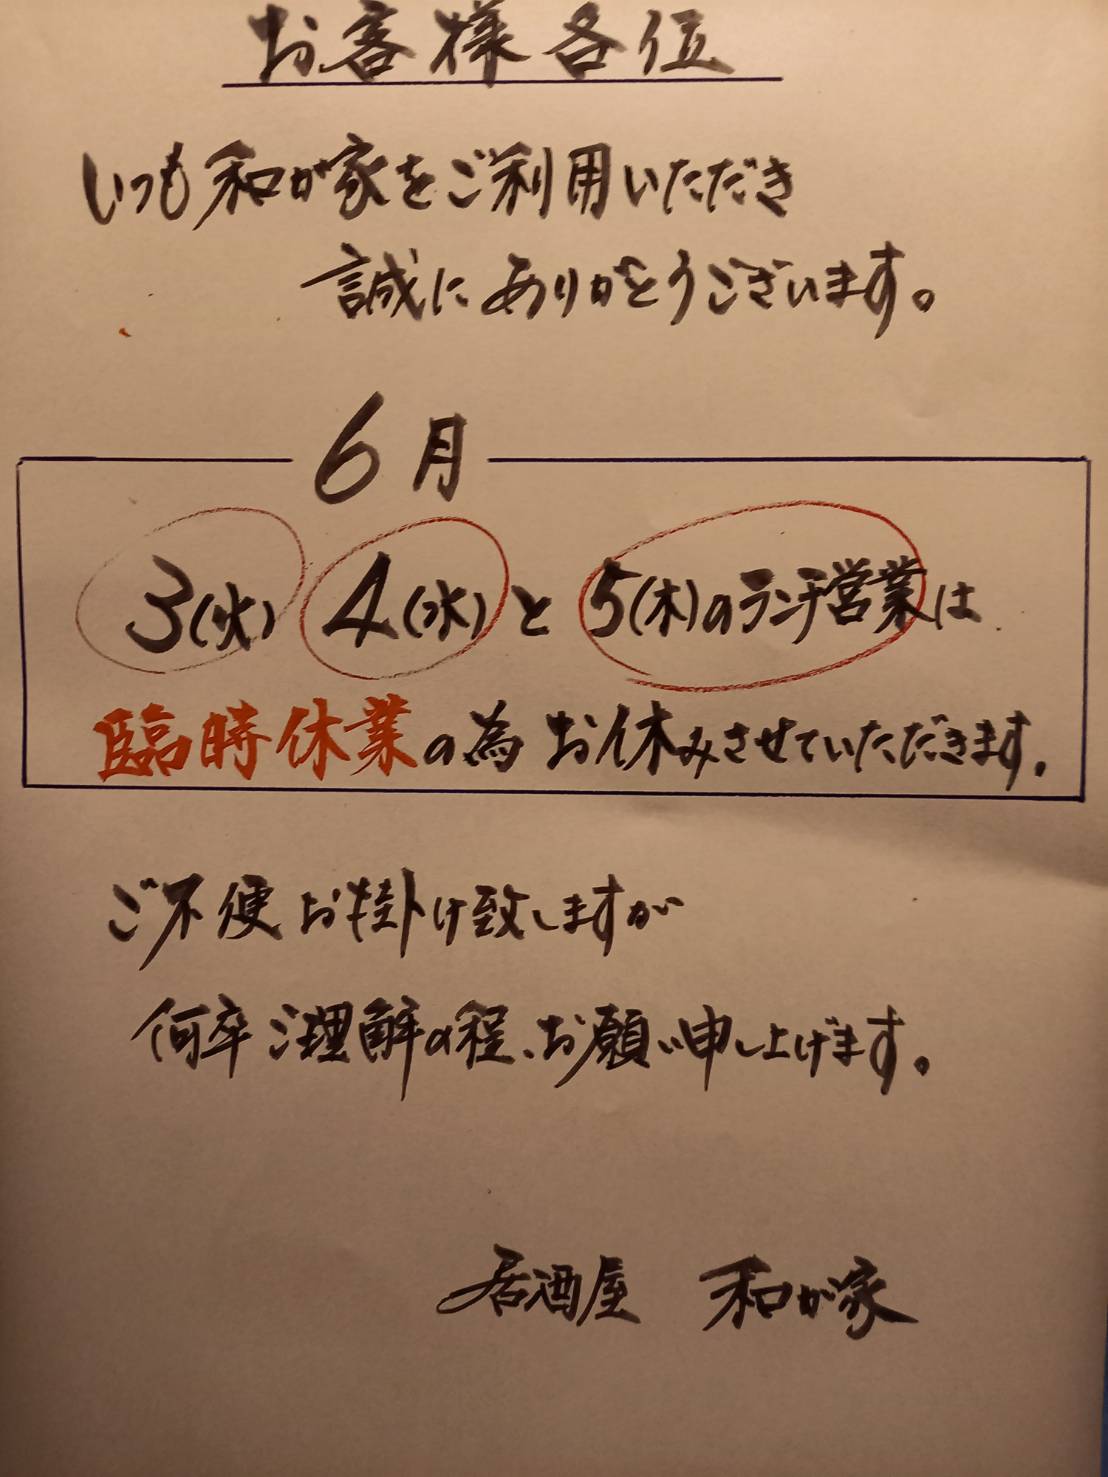 お客様各位
しつも和が家をご利用いただき
誠にありがとうございます。
6月
3(火) 4(水)と5(木)のランチ営業は
臨時休業の為お休みさせていただきます.
ご不便お掛け致しますが
何卒ご理解の程、お願い申し上げます。
居酒屋 和が家